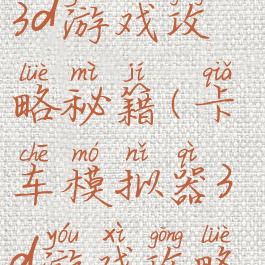 3d游戏攻
lüè mì jí qiǎ
略秘籍(卡
chē mó nǐ qì
车模拟器3
yóu xì gōng lüè
d游戏攻略